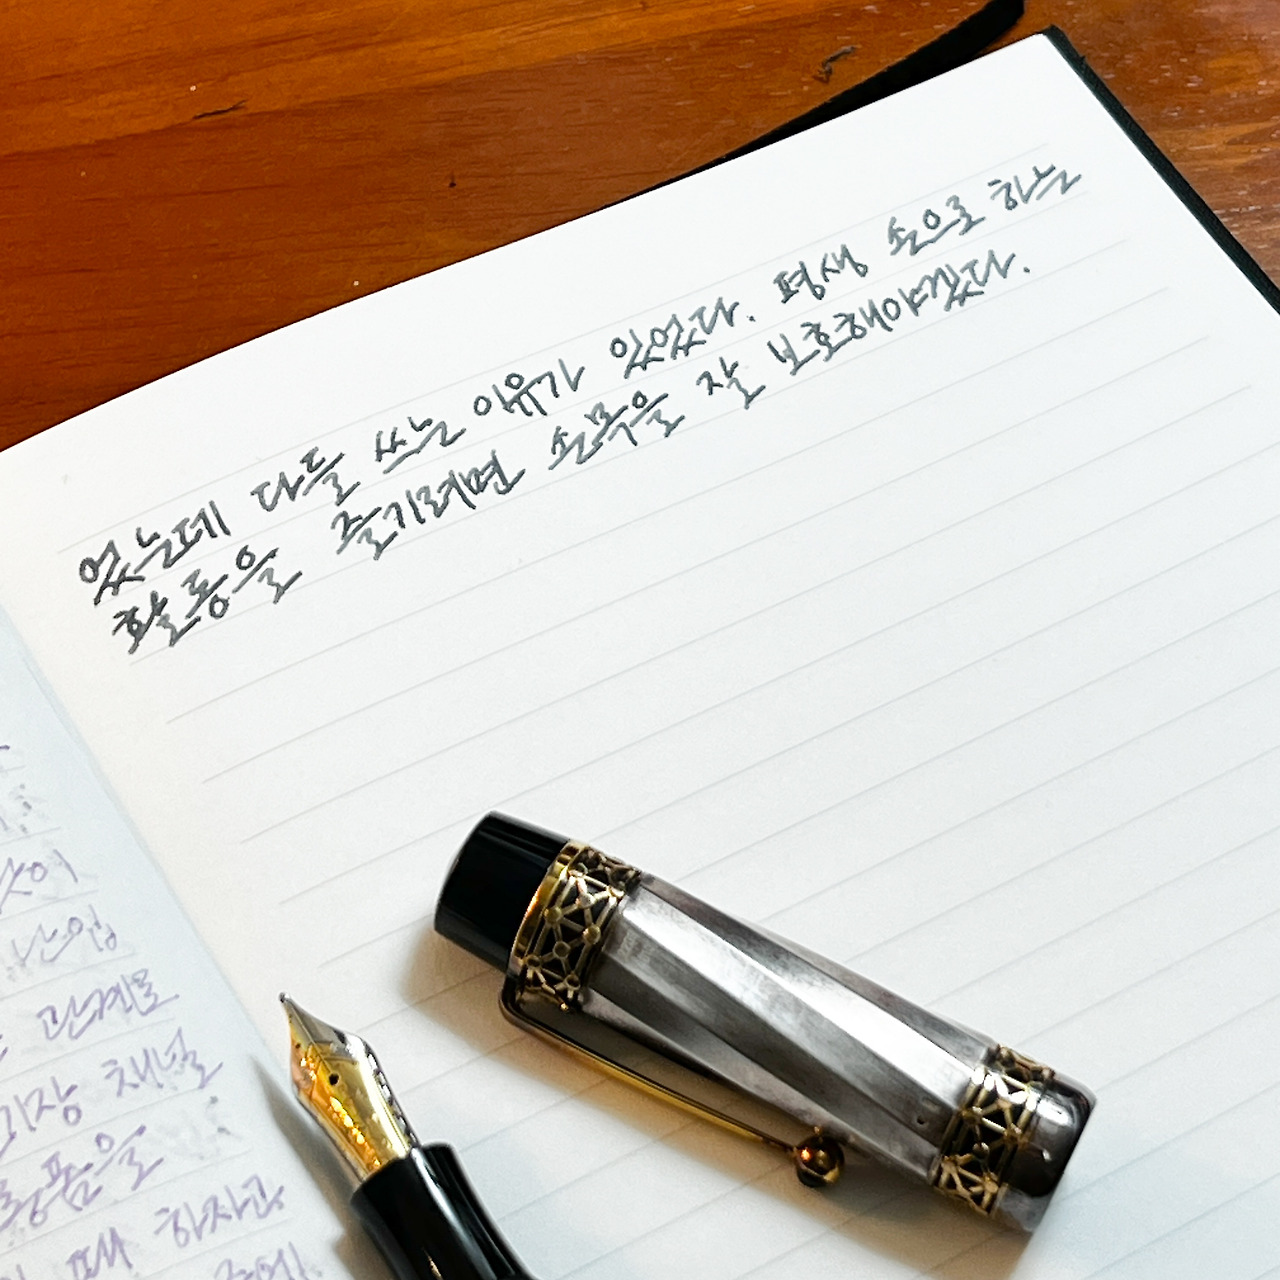 없는데 다들 쓰는 이유가 있었다. 평생 손으로 하는
활동을 즐기려면 손목을 잘 보호해야겠다.
난임
관계를
채널
용품을
때 하자고